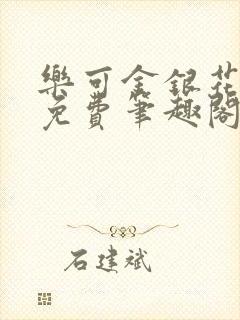 樂可金銀花
免費筆趣閣
石建斌